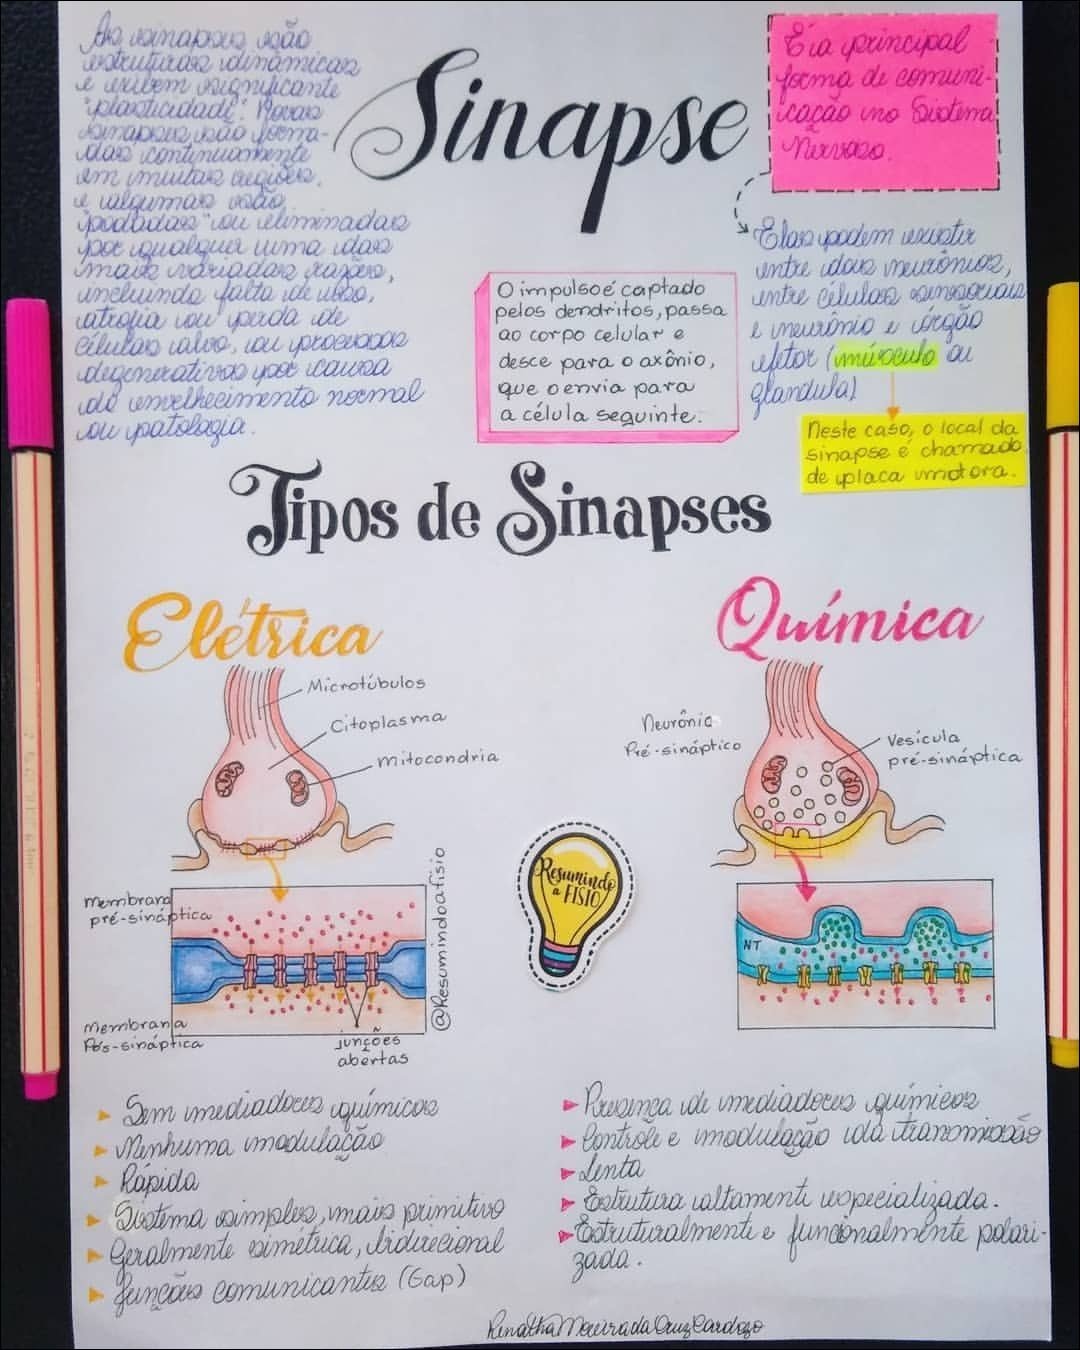 As sinapses são
estruturas dinâmicas
e exibem significante
"plasticidade". Novas
sinapses são forma-
das continuamente
em muitas regiões.
e algumas são
"podadas" ou eliminadas
por qualquer uma das
mais variadas razões,
incluindo falta de uso,
atrofia ou perda de
células alvo, ou processos
degenerativos por causa
do envelhecimento normal
ou patologia.
Sinapse
É a principal
forma de comuni-
cação no Sistema
Nervoso.
Elas podem existir
entre dois neurônios,
entre células sensoriais
e neurônio e órgão
efetor (músculo ou
glândula)
Neste caso, o local da
sinapse é chamado
de placa motora.
O impulso é captado
pelos dendritos, passa
ao corpo celular e
desce para o axônio,
que o envia para
a célula seguinte.
Tipos de Sinapses
Elétrica
Microtúbulos
Citoplasma
Mitocondria
membrana
pré-sináptica
Membrana
Pós-sináptica
junções
abertas
@Resumindoafisio
Resumindo
a FISIO
Química
Neurônio
Pré-sináptico
Vesícula
pré-sináptica
NT
Sem mediadores químicos
Nenhuma modulação
Rápida
Sistema simples, mais primitivo
Geralmente simétrica, bidirecional
Junções comunicantes (Gap)
Presença de mediadores químicos
Contrôle e modulação da transmissão
Lenta
Estrutura altamente especializada.
Estruturalmente e funcionalmente polari-
zada.
Renatha Moreira da Cruz Cardozo